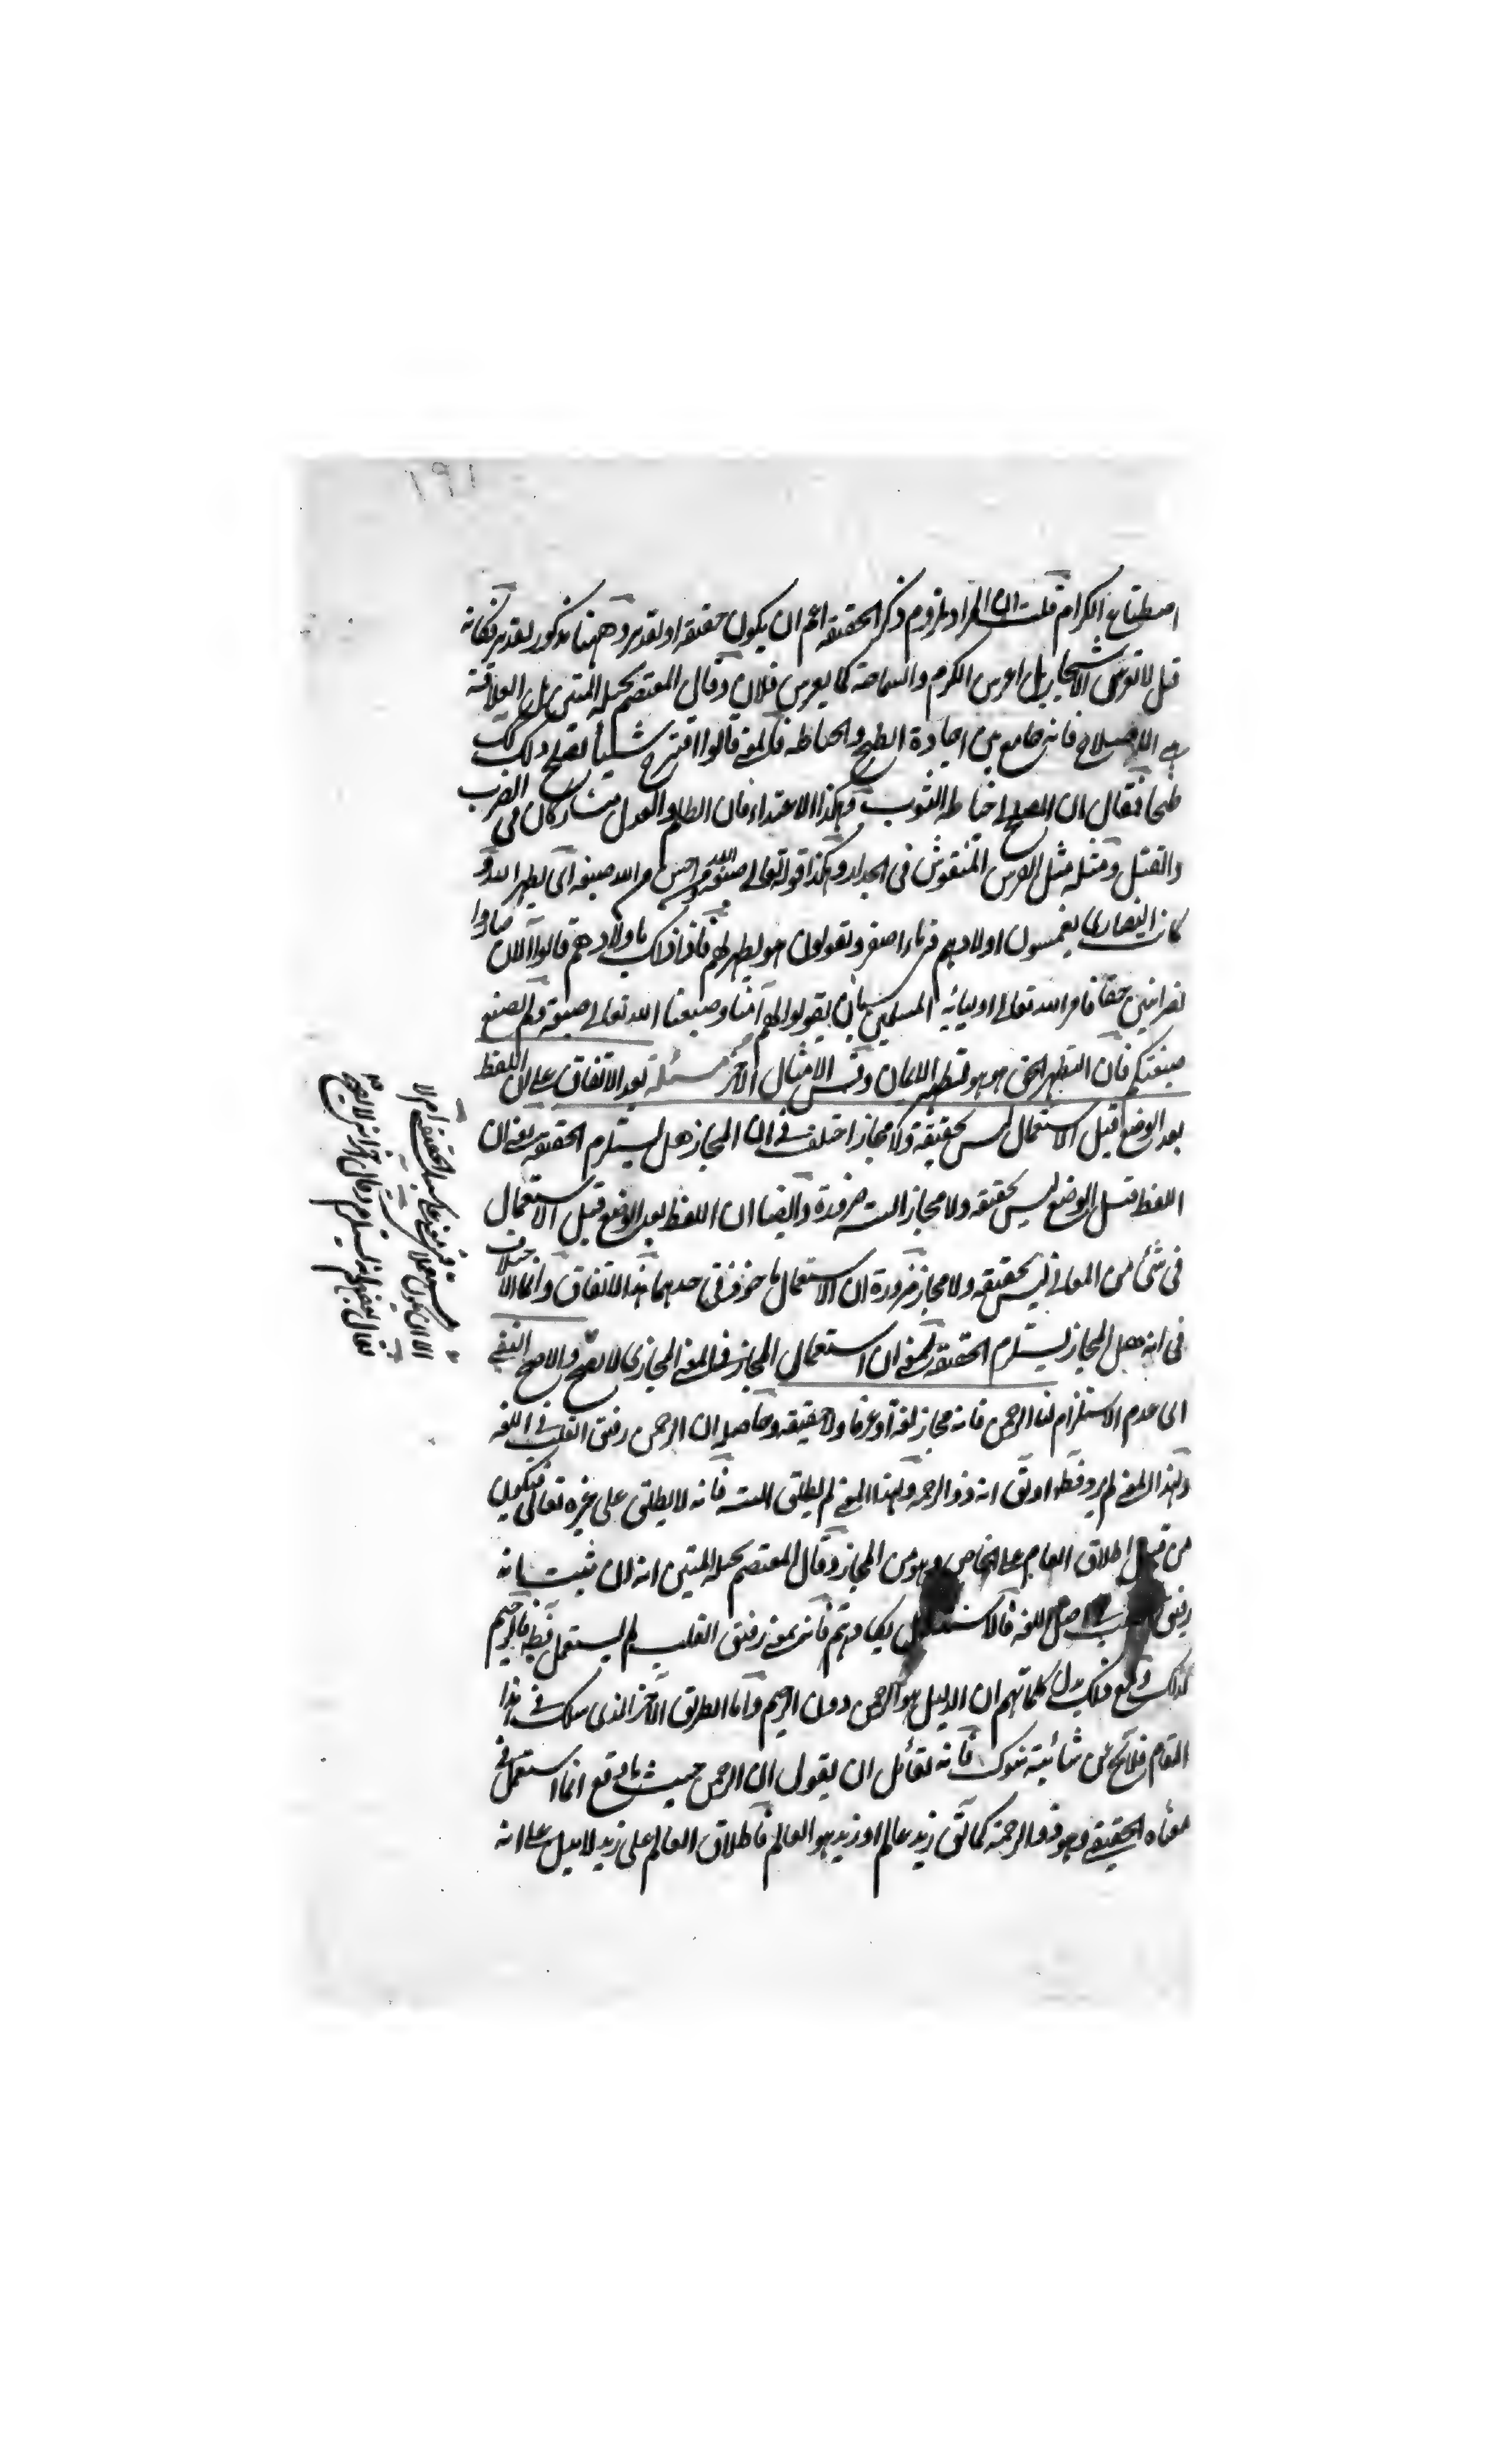 ١٩١
اصطناع الكرام قلت ان المراد بلزوم ذكر الحقيقة اعم ان يكون حقيقة او تقديرا وههنا مذكور تقديرا فكانه
قيل لا تغرس الاشجار بل اغرس الكرم والسماحة كما يغرس فلان وقال المعتصم بحبله المتين بل العلاقة
هي الاصلاح فانه جامع بين اجادة الطبخ والخياطة فالمعنى قالوا اقترح شيئا نصلح ذلك لك
طبخا فقال ان اصلحوا خياطة الثوب وهكذا الاعتداء فان الظلم والعدل متشاركان في الضرب
والقتل ومثله مثل الفرس المنقوش في الجدار وهكذا قوله تعالى صبغة الله ومن احسن من الله صبغة اى تطهير الله و
كان النصارى يغمسون اولادهم في ماء اصفر ويقولون هو تطهير لهم فاذا فعل ذلك باولادهم قالوا الآن صاروا
نصرانيين حقا فامر الله تعالى اوليائه المسلمين بان يقولوا لهم آمنا وصبغنا الله تعالى صبغة ولم نصبغ
صبغتكم فان التطهير الحق هو هو تطهير الايمان وقس الامثال الاخر مسئلة بعد الاتفاق على ان اللفظ
بعد الوضع قبل الاستعمال ليس بحقيقة ولا مجاز اختلف في ان المجاز هل يستلزم الحقيقة يعنى ان
اللفظ قبل الوضع ليس بحقيقة ولا مجاز البتة ضرورة وايضا ان اللفظ بعد الوضع قبل الاستعمال
في شئ من المعاني ليس بحقيقة ولا مجاز ضرورة ان الاستعمال ماخوذ في حدهما هذا الاتفاق وانما الاختلاف
في انه هل المجاز يستلزم الحقيقة بمعنى ان استعمال المجاز في المعنى المجازي لا يصح والاصح النفى
اى عدم الاستلزام لنا الرحمن فانه مجاز لغة او عرفا ولا حقيقة وحاصله ان الرحمن رقيق القلب في اللغة
وبهذا المعنى لم يرد قط او نق انه ذو الرحمة وبهذا المعنى لم يطلق البتة فانه لا يطلق على غيره تعالى فيكون
من قبيل اطلاق العام على الخاص وهو من المجاز وقال المعتصم بحبله المتين انه ان ثبت انه
رقيق القلب في اصل اللغة فالاستدلال يكاد يتم فانه بمعنى رقيق القلب لم يستعمل قط فالرحيم
كذلك ومع ذلك يدل كلماتهم ان الدليل هو الرحمن دون الرحيم واما الطريق الآخر الذى سلك في هذا
المقام فلا يخ عن شائبة شوك فانه لقائل ان يقول ان الرحمن حيث ما وقع انما استعمل في
معناه الحقيقى وهو ذو الرحمة كما نق زيد عالم او زيد هو العالم فاطلاق العالم على زيد لا يدل على انه